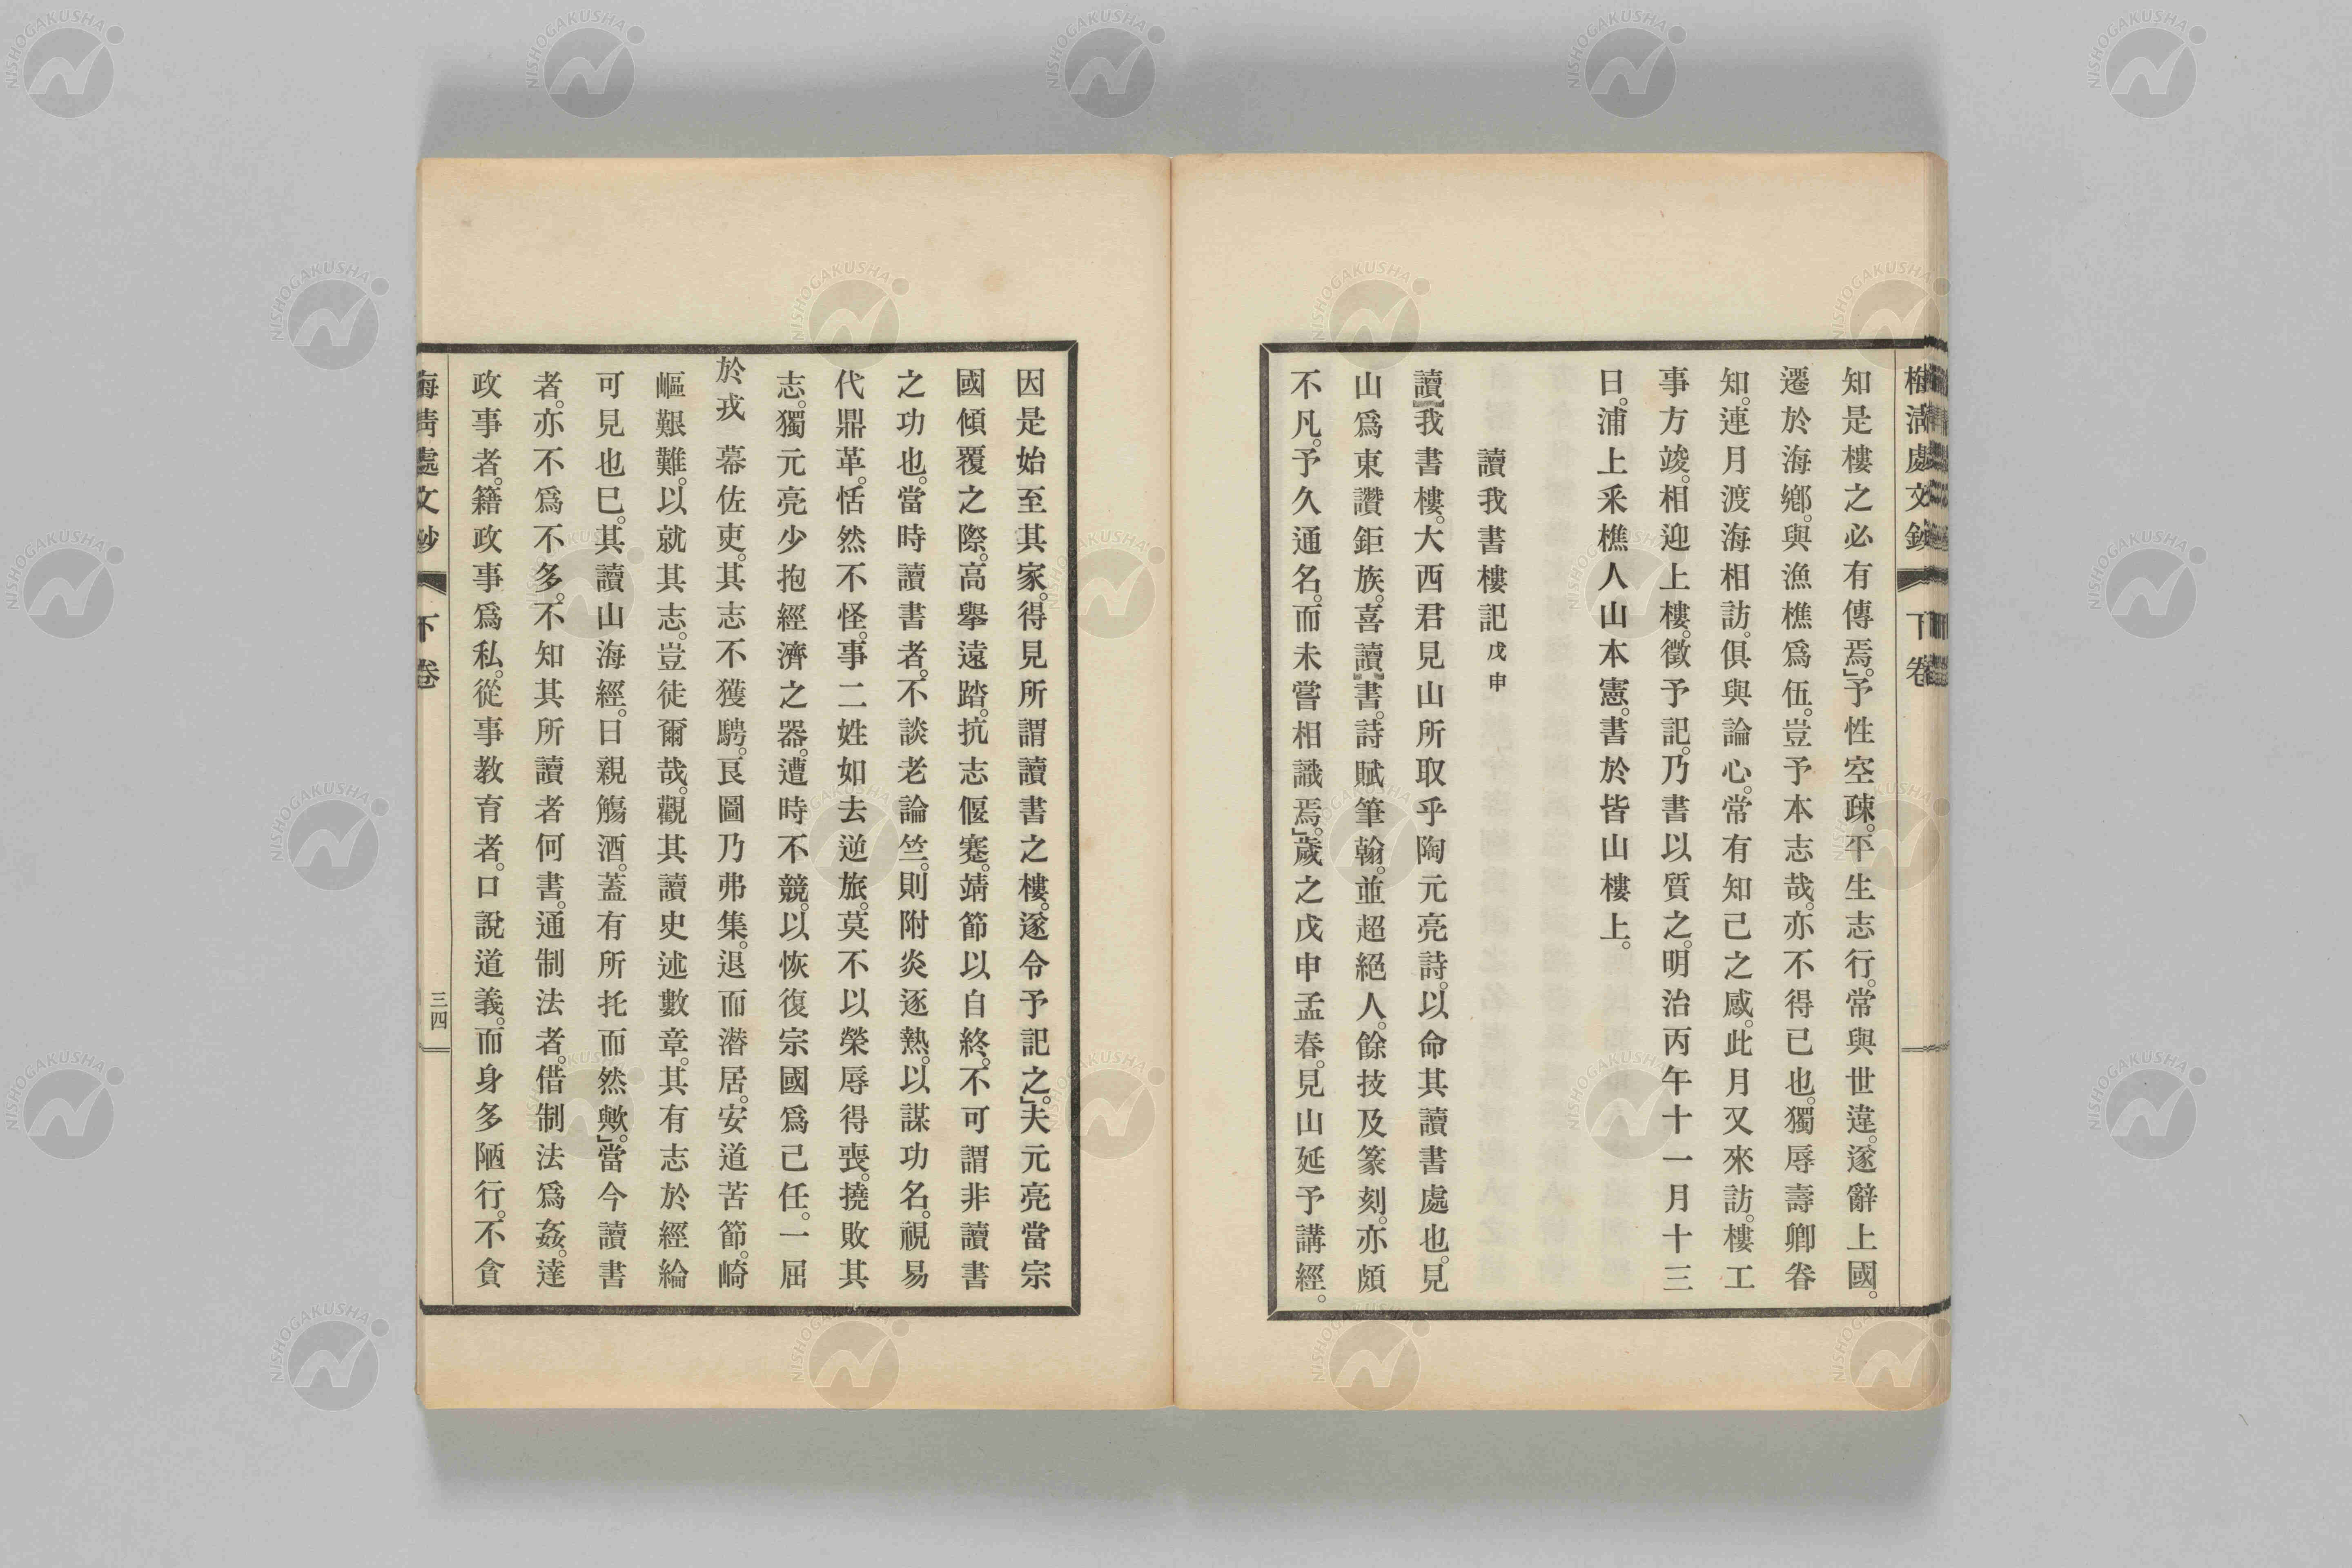 梅清處文鈔 下卷
知是樓之必有傳焉。」予性空疎。平生志行。常與世違。遂辭上國。
遷於海鄉。與漁樵爲伍。豈予本志哉。亦不得已也。獨辱壽卿眷
知。連月渡海相訪。俱與論心。常有知己之感。此月又來訪。樓工
事方竣。相迎上樓。徵予記。乃書以質之。明治丙午十一月十三
日。浦上釆樵人山本憲。書於皆山樓上。
讀我書樓記 戊申
讀我書樓。大西君見山所取乎陶元亮詩。以命其讀書處也。見
山爲東讚鉅族。喜讀書。詩賦筆翰。並超絕人。餘技及篆刻。亦頗
不凡。予久通名。而未嘗相識焉。」歲之戊申孟春。見山延予講經。
因是始至其家。得見所謂讀書之樓。遂令予記之。」夫元亮當宗
國傾覆之際。高擧遠踏。抗志偃蹇。靖節以自終。不可謂非讀書
之功也。當時讀書者。不談老論竺。則附炎逐熱。以謀功名。視易
代鼎革。恬然不怪。事二姓如去逆旅。莫不以榮辱得喪。撓敗其
志。獨元亮少抱經濟之器。遭時不競。以恢復宗國爲己任。一屈
於戎幕佐吏。其志不獲騁。良圖乃弗集。退而潛居。安道苦節。崎
嶇艱難。以就其志。豈徒爾哉。觀其讀史述數章。其有志於經綸
可見也已。其讀山海經。日親觴酒。蓋有所托而然歟。」當今讀書
者。亦不爲不多。不知其所讀者何書。通制法者。借制法爲姦。達
政事者。籍政事爲私。從事教育者。口說道義。而身多陋行。不貪
梅清處文鈔 下卷 三四
NISHOGAKUSHA